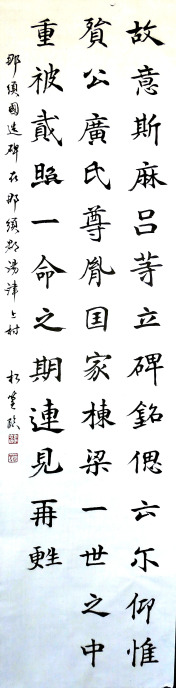 故意斯麻呂䓁立碑銘偲云尓仰惟
殞公廣氏尊胤囯家棟梁一世之中
重被貳照一命之期連見再甦
那須國造碑在那須郡湯津上村